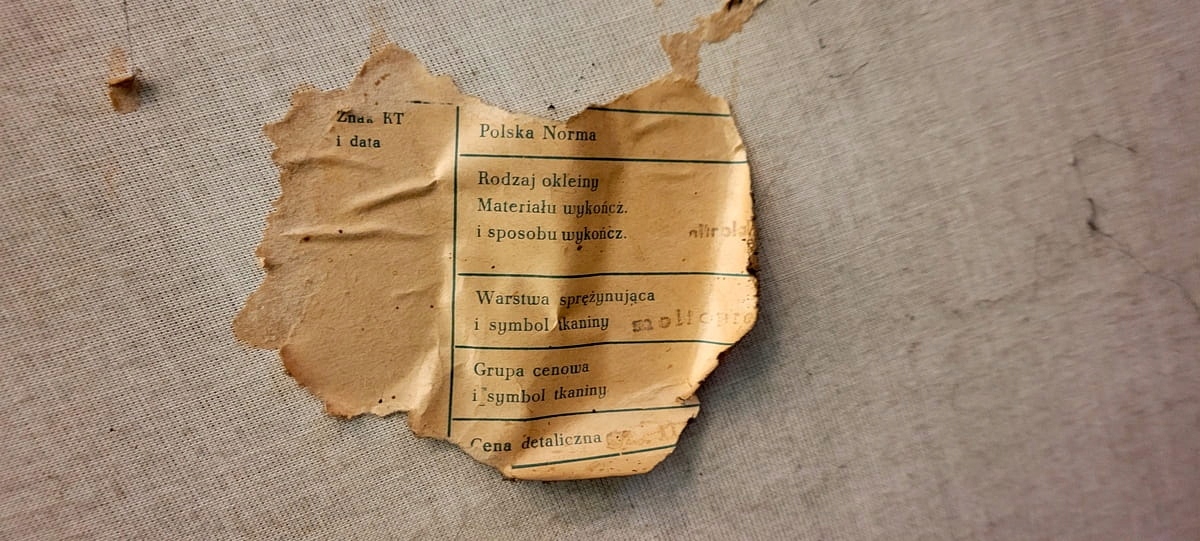 Znak KT
i data
Polska Norma
Rodzaj okleiny
Materiału wykończ.
i sposobu wykończ.
Warstwa sprężynująca
i symbol tkaniny
Grupa cenowa
i symbol tkaniny
Cena detaliczna